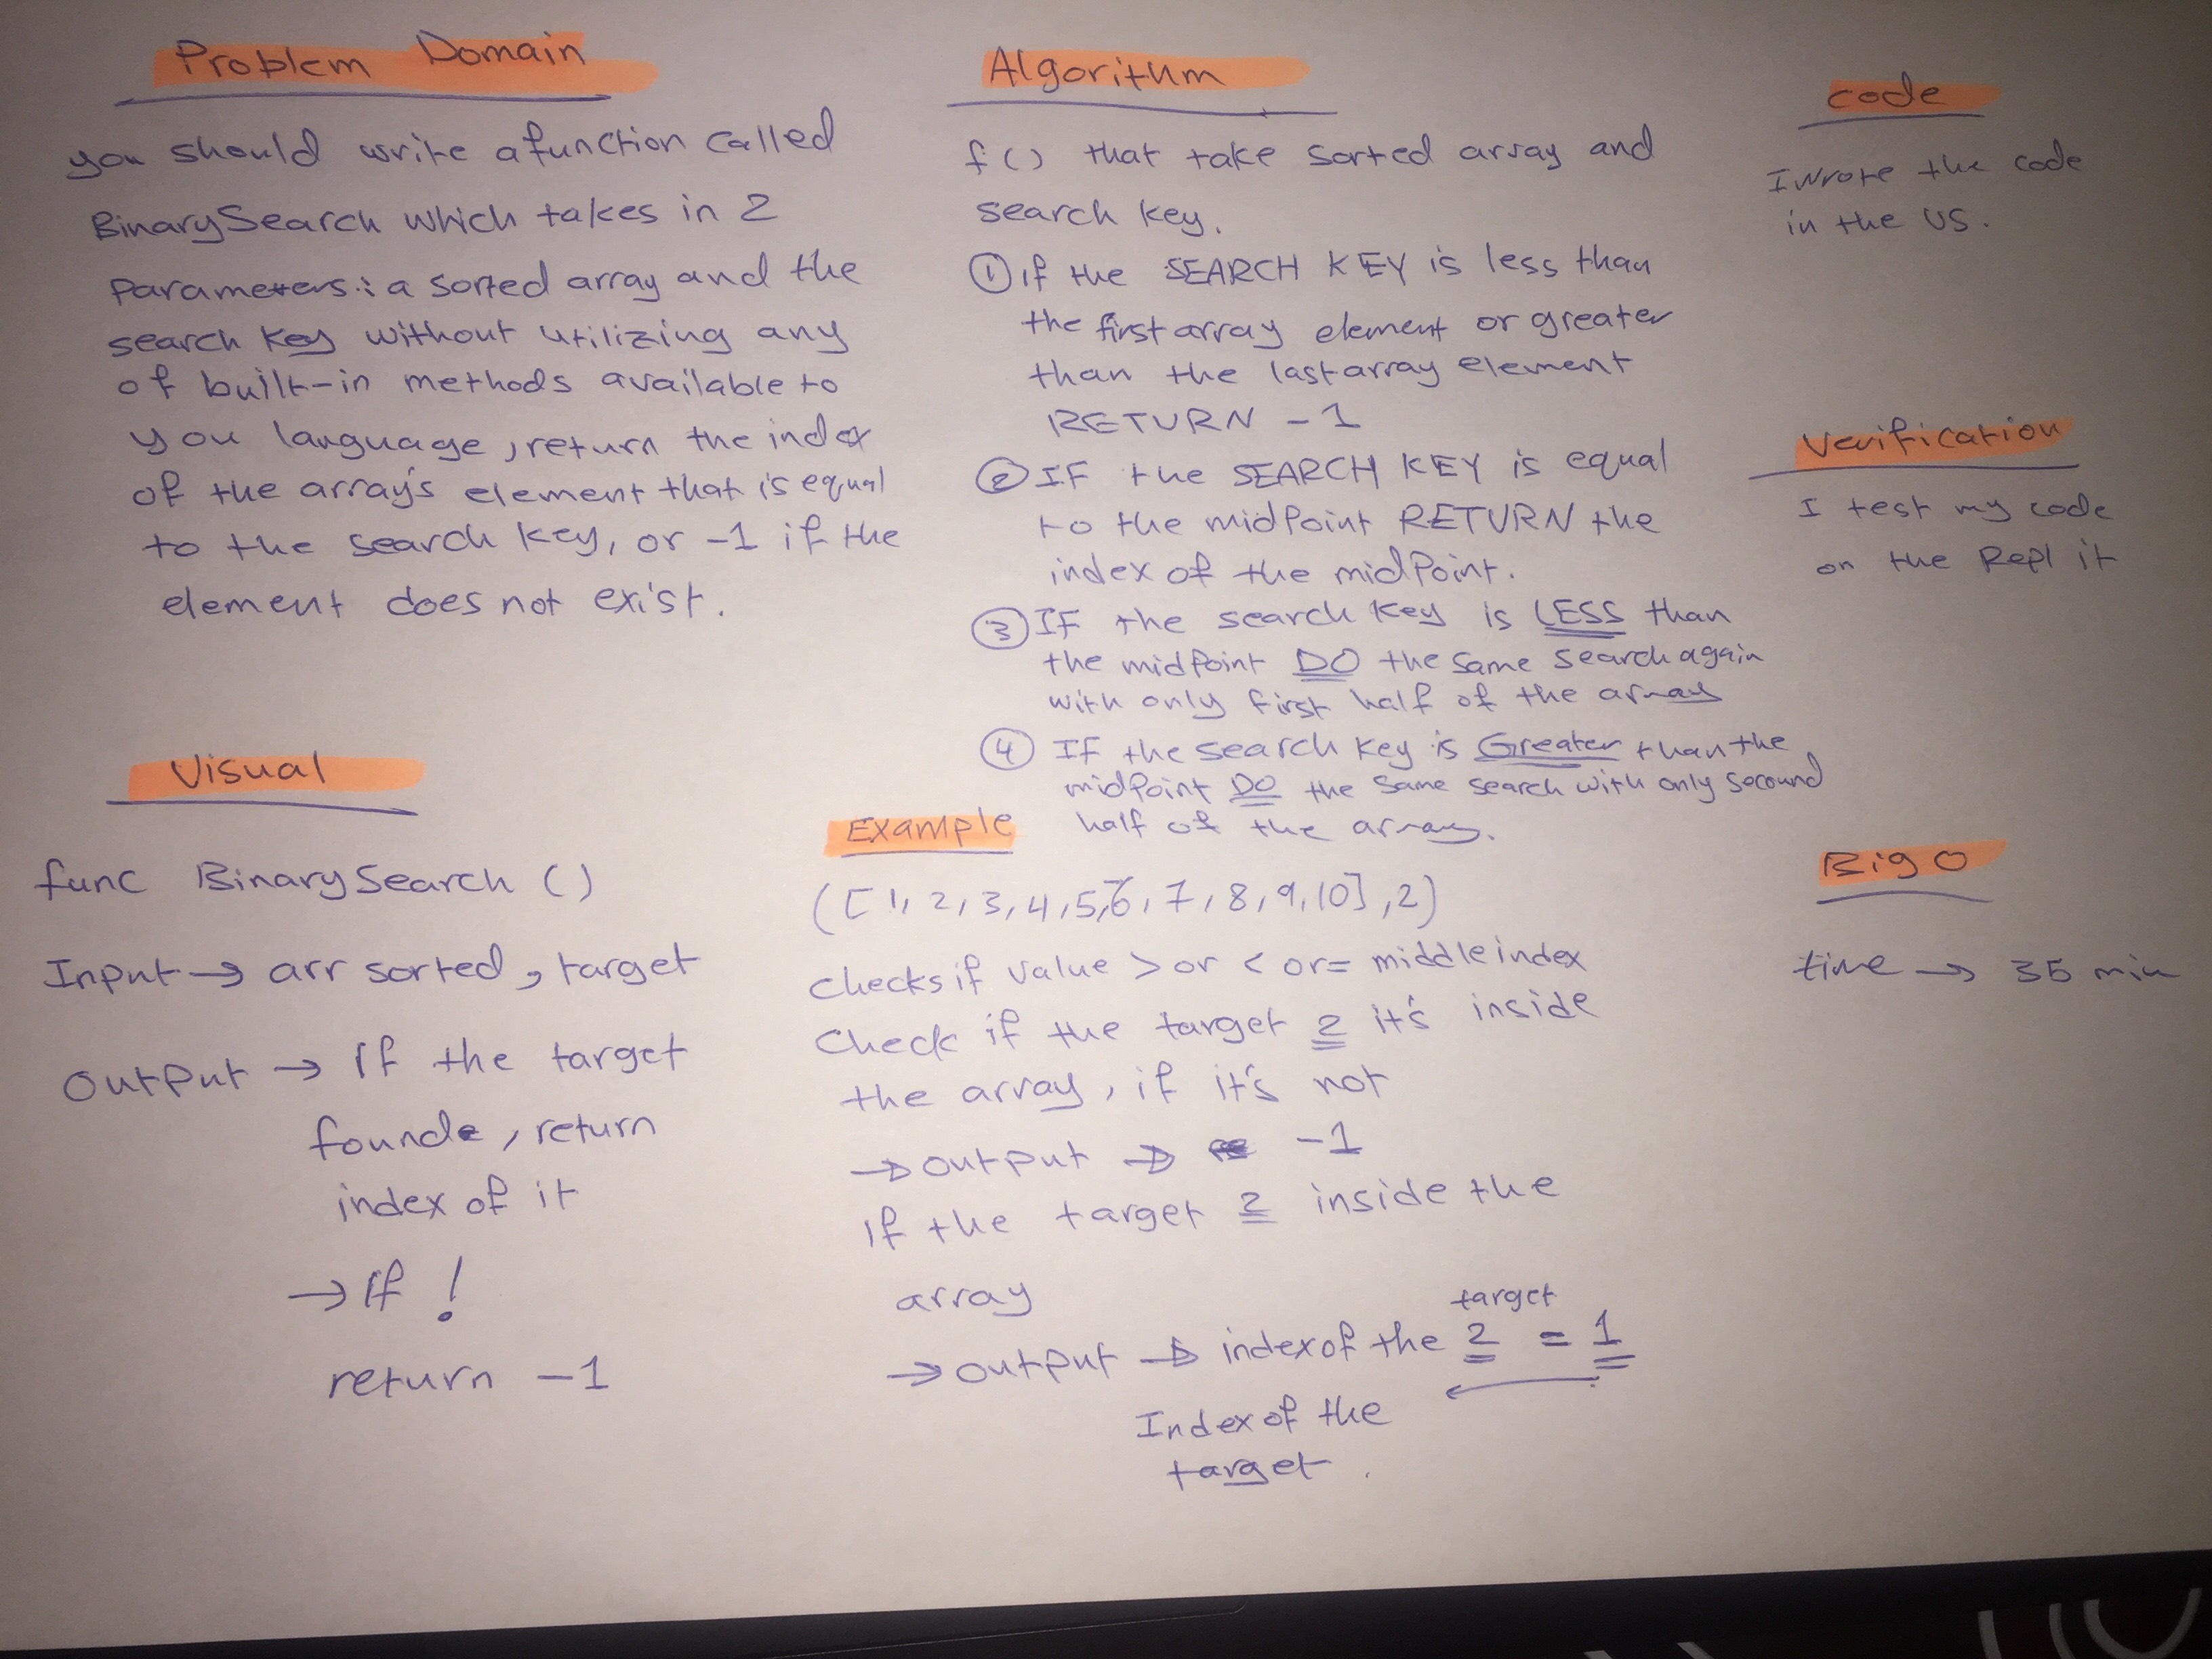 Problem Domain
you should write a function called
BinarySearch which takes in 2
Parameters: a sorted array and the
search key without utilizing any
of built-in methods available to
you language, return the index
of the array's element that is equal
to the search key, or -1 if the
element does not exist.
Visual
func BinarySearch ()
Input → arr sorted, target
output → If the target
founde, return
index of it
→ If !
return -1
Algorithm
f() that take sorted array and
search key.
① if the SEARCH KEY is less than
the first array element or greater
than the last array element
RETURN -1
② IF the SEARCH KEY is equal
to the midPoint RETURN the
index of the midPoint.
③ IF the search key is LESS than
the midPoint DO the same search again
with only first half of the array
④ IF the search key is Greater than the
midPoint DO the same search with only second
half of the array.
Example
([1,2,3,4,5,6,7,8,9,10],2)
checks if value > or < or = middle index
Check if the target 2 it's inside
the array, if it's not
→ output → -1
if the target 2 inside the
array
→ output → index of the 2 = 1
target
Index of the
target.
Code
I wrote the code
in the VS.
Verification
I test my code
on the Repl it
Big O
time → 35 min